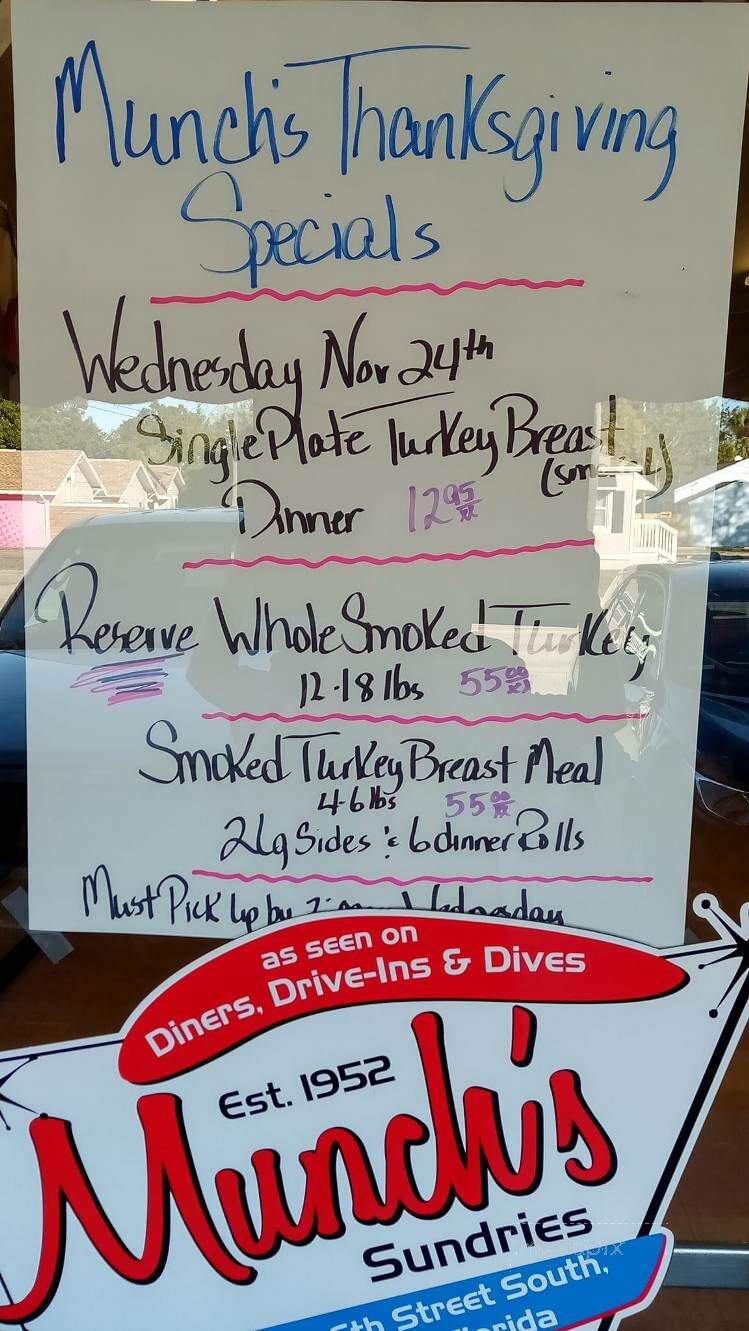 Munch's Thanksgiving
Specials
Wednesday Nov 24th
Single Plate Turkey Breast
Dinner 12.95
Reserve Whole Smoked Turkey
12-18 lbs 55.00
Smoked Turkey Breast Meal
4-6 lbs 55.00
2 Lg Sides & 6 dinner Rolls
Must Pick Up by Wednesday
as seen on
Diners, Drive-Ins & Dives
Est. 1952
Munch's
Sundries
Street South,